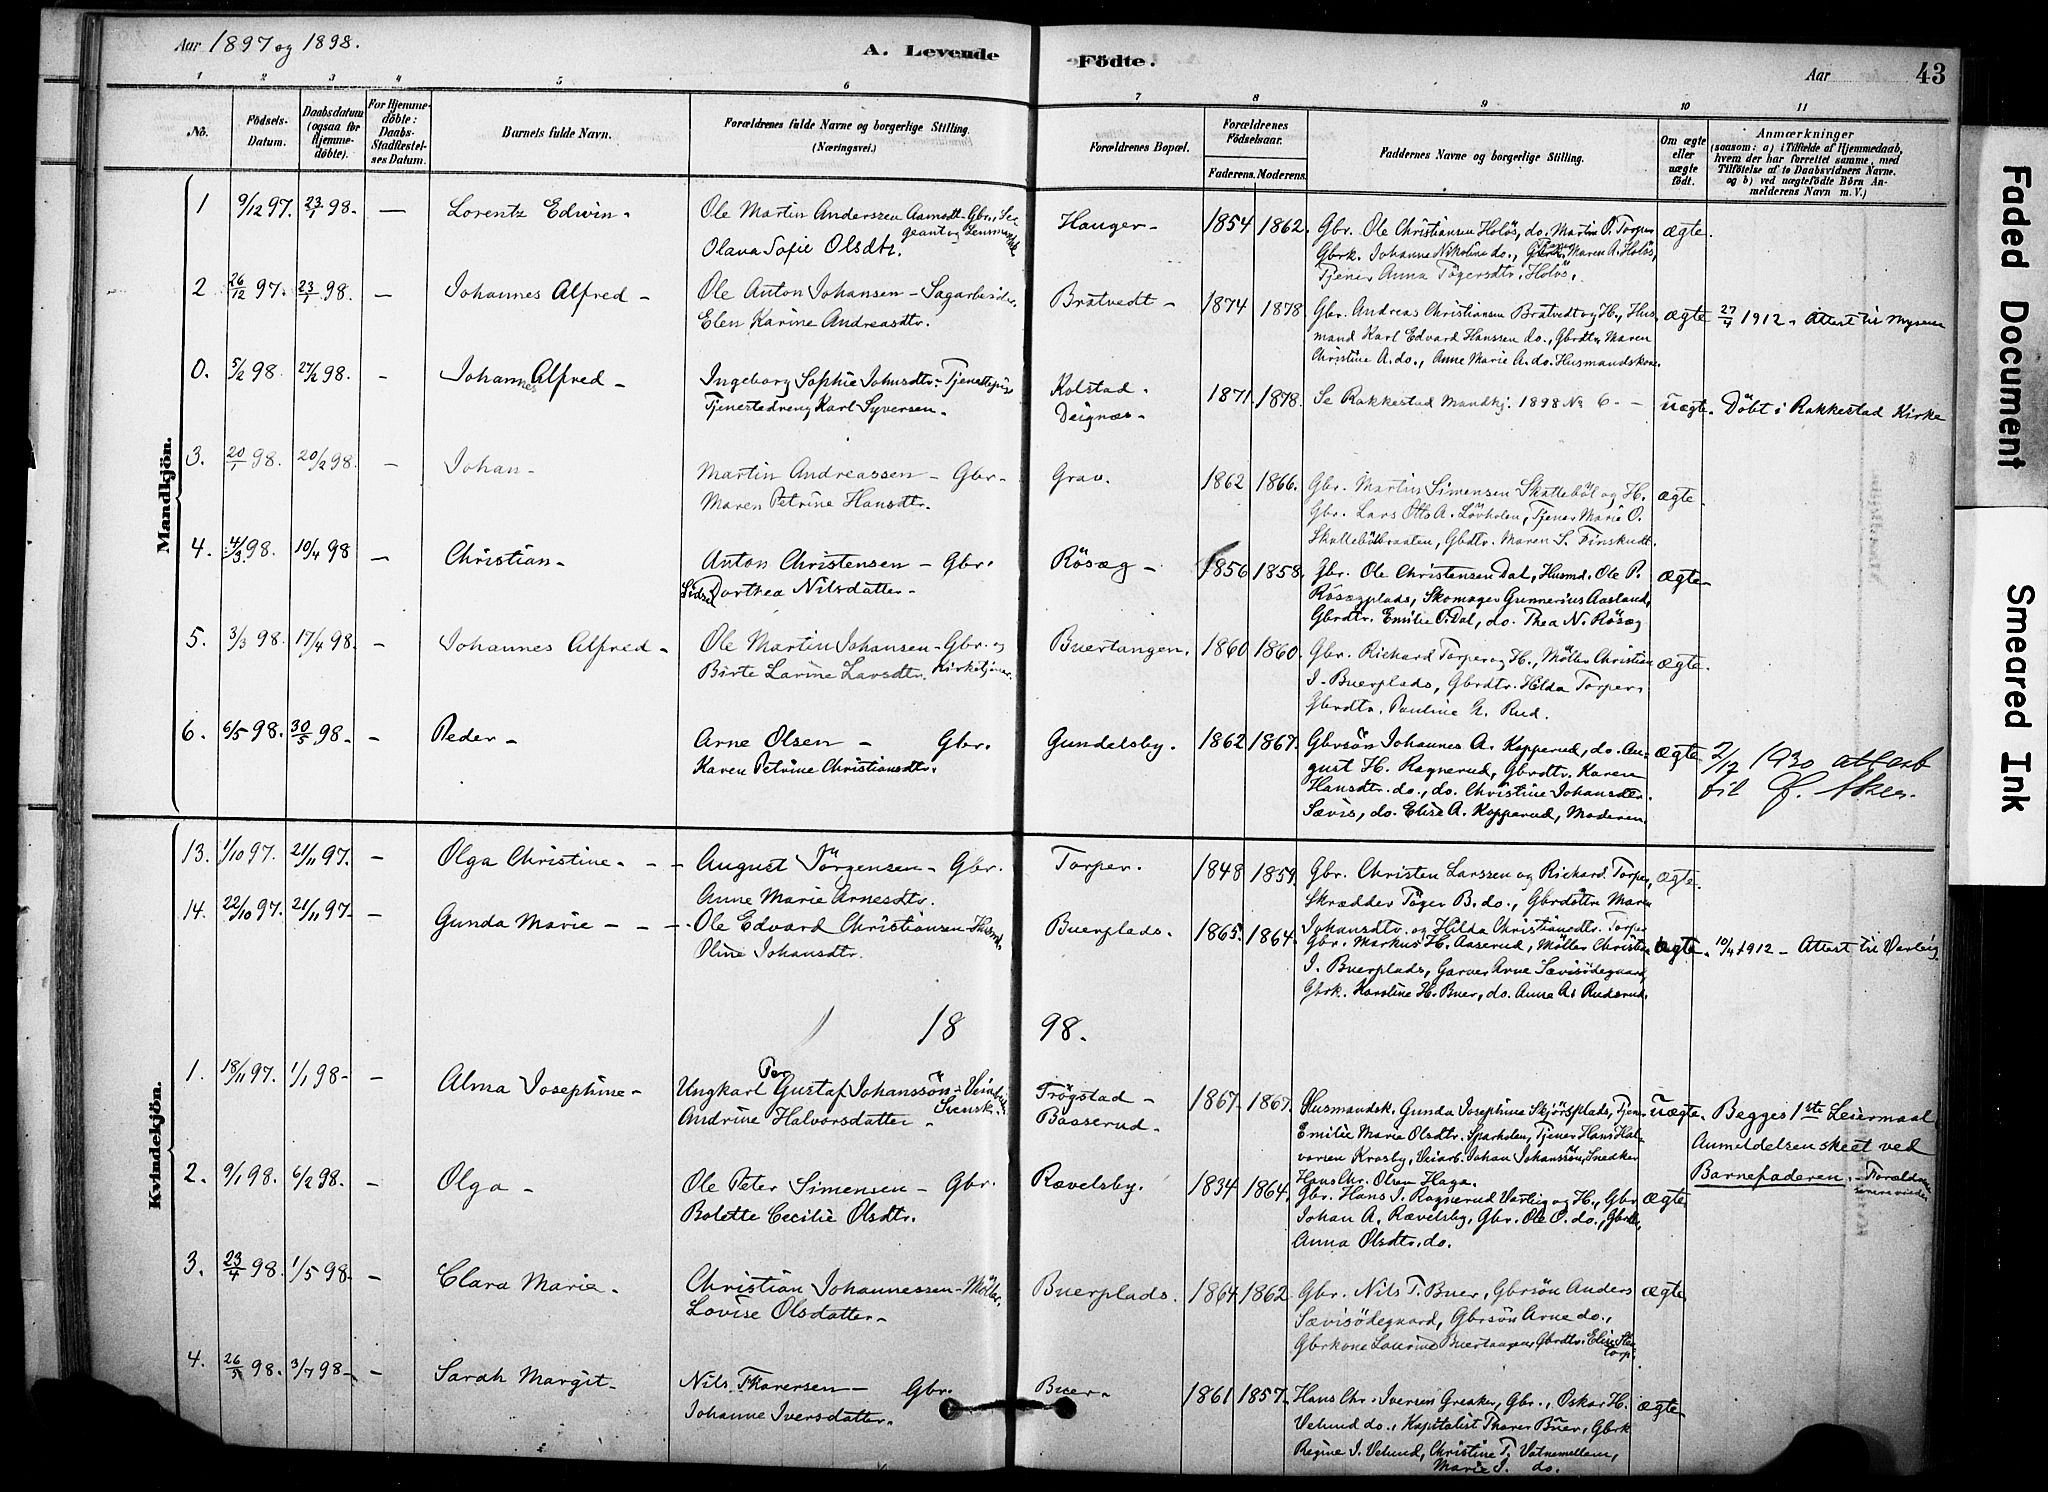 Aar 1897 og 1898.
A. Levende Födte.
Aar 43
1 2 3 4 5 6 7 8 9 10 11
No.
Födsels-Datum.
Daabsdatum (ogsaa for Hjemmedöbte).
For Hjemmedöbte: Daabs-Stadfæstelses Datum.
Barnets fulde Navn.
Forældrenes fulde Navne og borgerlige Stilling. (Næringsvei.)
Forældrenes Bopæl.
Forældrenes Födselsaar.
Faderens. Moderens.
Faddernes Navne og borgerlige Stilling.
Om ægte eller uægte födt.
Anmærkninger (saasom: a) i Tilfælde af Hjemmedaab, hvem der har forrettet samme, med Tilföielse af to Daabsvidners Navne. og b) ved uægtefödte Börn Anmelderens Navn m. V.)
Mandkjön.
1 9/12 97. 23/1 98. — Lorentz Edwin - Ole Martin Anderssen Aamodt - Gbr., Sergeant og Lensmandsb. Hauger - 1854 1862. Gbr. Ole Christiansen Holös, do. Martin O. Torper ægte.
Olava Sofie Olsdtr. Gbrk. Johanne Nikoline do., Maren A. Holös,
Tjener Anna Tögersdtr. Holös.
2 26/12 97. 23/1 98. — Johannes Alfred - Ole Anton Johansen - Sagarbeider. Bråtvedt - 1874 1878. Gbr. Andreas Christiansen Bråtvedt og H., Hus- ægte 27/4 1912 - Attest til Mysen
Elen Karine Andreasdtr. mand Karl Edvard Hanssen do., Gbrdtr. Maren
Christine A. do., Anne Marie A. do. Husmandskone
0. 5/2 98. 27/2 98. - Johannes Alfred - Ingeborg Sophie Johnsdtr. - Tjenestepige Kolstad. 1871 1878. Se Rakkestad Mandkj. 1898 No 6. - uægte. Döbt i Rakkestad Kirke
Tjenestedreng Karl Syversen. Deignæs -
3. 20/1 98. 20/2 98. - Johan - Martin Andreassen - Gbr. Grav. 1862 1866. Gbr. Martin Simensen Skatteböl og H. ægte.
Maren Petrine Hansdtr. Gbr. Lars Otto A. Lövholen, Tjener Marie O.
Skattebölbraaten, Gbdtr. Maren S. Finskudt.
4. 4/3 98. 10/4 98 - Christian - Anton Christensen - Gbr. Rösæg - 1856 1858. Gbr. Ole Christensen Dal, Husmd. Ole P. ægte -
Sidsel Dorthea Nilsdatter - Rösægplads, Skomager Gunnerius Aasland,
Gbrdtr. Emilie O. Dal, do. Thea N. Rösæg
5. 3/3 98. 17/4 98 - Johannes Alfred - Ole Martin Johansen - Gbr. og Kirketjener. Buertangen. 1860 1860. Gbr. Richard Torper og H., Möller Christian ægte.
Birte Larine Larsdtr. J. Buerplads, Gbrdtr. Hilda Torper,
Gbrdtr. Pauline H. Rud.
6. 6/5 98. 30/5 98 - Peder - Arne Olsen - Gbr. Gundelsby. 1862 1867. Gbrsön Johannes A. Kopperud, do. Au- ægte 2/12 1930 attest
Karen Petrine Christiansdtr. gust H. Ragnerud, Gbrdtr. Karen til Ø. Aker.
Hansdtr. do., do. Christine Johansdtr.
Sævis, do. Elise A. Kopperud, Moderen.
Kvindekjön.
13. 1/10 97. 21/11 97. - Olga Christine - August Jörgensen - Gbr. Torper. 1848 1859. Gbr. Christen Larssen og Richard Torper, ægte.
Anne Marie Arnesdtr. Skrædder Töger B. do., Gbrdøttr. Maren
Johansdtr. og Hilda Christiansdtr. Torper
14. 22/10 97. 21/11 97. - Gunda Marie - Ole Edvard Christiansen - Husmd. Buerplads. 1865. 1864. Gbr. Markus H. Aaserud, Möller Christian ægte. 10/4 1912 - Attest til Varteig.
Oline Johansdtr. J. Buerplads, Garver Arne Sævisödegaard,
Gbrk. Karoline H. Buer, do. Anne A. Ruderud.
18 98.
1. 18/11 97. 1/1 98 - Alma Josephine - Ungkarl Per Gustaf Johanssön - Veiarb. Svensk Trögstad - 1867. 1867. Husmandsk. Gunda Josephine Skjörsplads, Tjen. uægte. Begges 1ste Leiermaal
Andrine Halvorsdatter - Baaserud. Emilie Marie Olsdtr. Sparholen, Tjener Hans Hal- Anmeldelsen skeet ved
vorsen Krosby, Veiarb. Johan Johanssön, Snedker Barnefaderen. - Forældrene
Hans Chr. Olsen Haga.
2. 9/1 98. 6/2 98. - Olga - Ole Peter Simensen - Gbr. Rævelsby. 1834 1864. Gbr. Hans J. Ragnerud Varteig og H., Gbr. ægte
Bolette Cecilie Olsdtr. Johan A. Rævelsby, Gbr. Ole O. do.,
Anna Olsdtr. do.
3. 23/4 98. 1/5 98 - Clara Marie - Christian Johannessen - Möller. Buerplads. 1864 1862 Gbr. Nils T. Buer, Gbrsön Anders ægte
Lovise Olsdatter - Sævisödegaard, Gbrsön Arne do.,
Gbrkone Laurine Buertangen, Gbrdtr. Elise Stentorp.
4. 26/5 98. 3/7 98 - Sarah Margit - Nils Tharersen - Gbr. Buer. 1861 1857. Hans Chr. Iversen Greaker, Gbr., Oskar H. ægte
Johanne Iversdatter. Velund do., Kapitalist Tharer Buer, Gbrk
Regine J. Velund, Christine T. Vatnemellem,
Marie J. do.
Faded Document
Smeared Ink